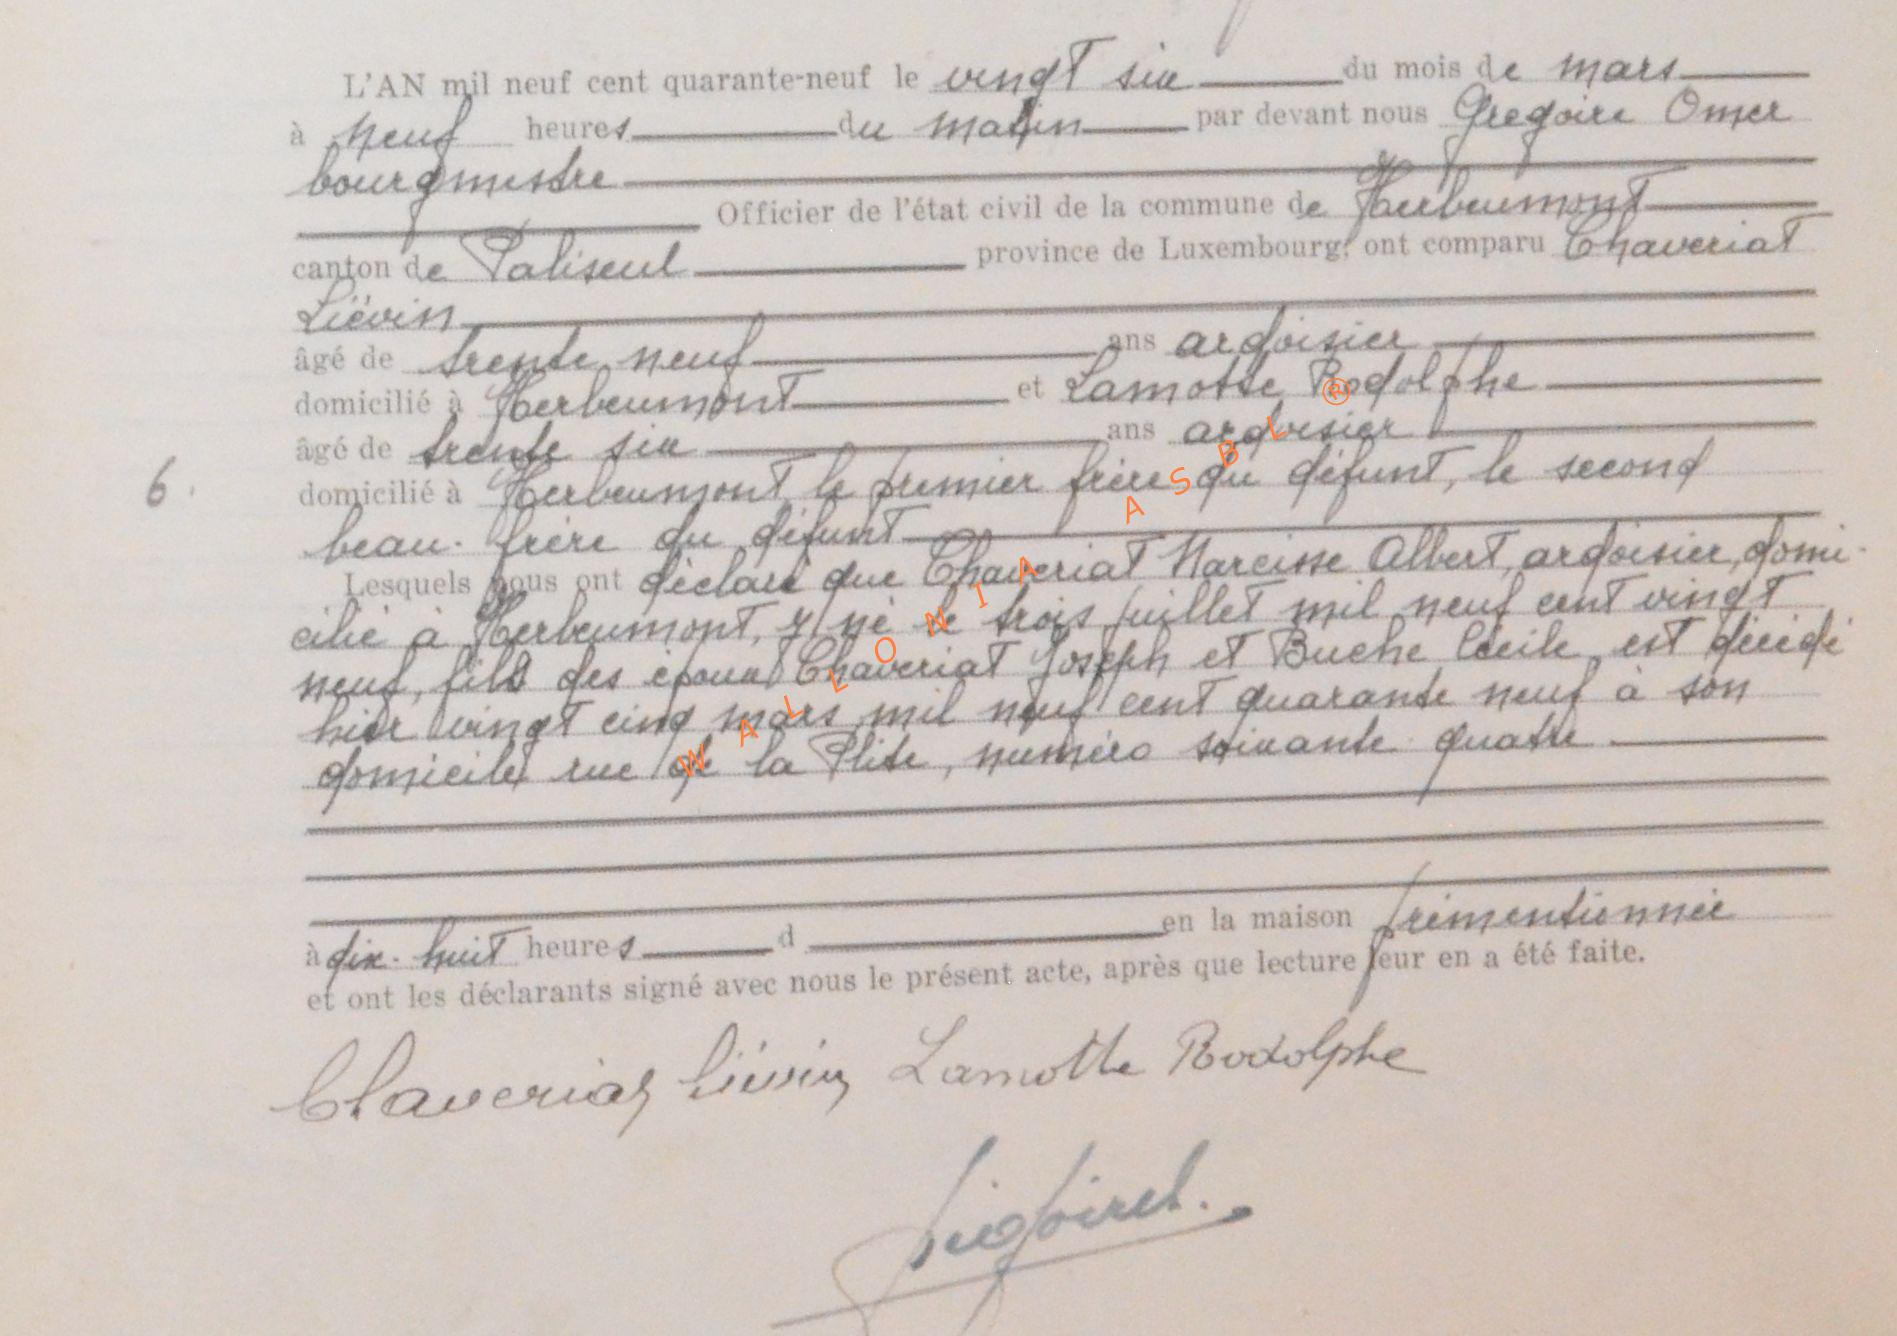 L'AN mil neuf cent quarante-neuf le vingt six du mois de mars
à neuf heures du matin par devant nous Gregoire Omer
bourgmestre
Officier de l'état civil de la commune de Herbeumont
canton de Paliseul province de Luxembourg, ont comparu Chaveriat
Liévin
âgé de trente neuf ans ardoisier
domicilié à Herbeumont et Lamotte Rodolphe
âgé de trente six ans ardoisier
6. domicilié à Herbeumont, le premier frère du défunt, le second
beau-frère du défunt
Lesquels nous ont déclaré que Chaveriat Narcisse Albert, ardoisier, domi-
cilié à Herbeumont, y né le trois juillet mil neuf cent vingt
neuf, fils des époux Chaveriat Joseph et Buche Cécile, est décédé
hier vingt cinq mars mil neuf cent quarante neuf à son
domicile, rue de la Plite, numéro soixante quatre
à dix-huit heures d en la maison prémentionnée
et ont les déclarants signé avec nous le présent acte, après que lecture leur en a été faite.
Chaveriat Liévin Lamotte Rodolphe
WALLONIA ASBL ®